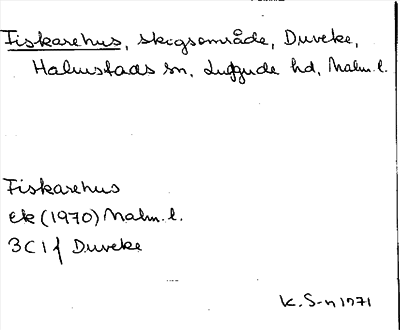 Fiskarehus, skogsområde, Duveke,
Halmstads sn, Luggude hd, Malm. l.
Fiskarehus
ek (1970) Malm. l.
3C1f Duveke
K. S-n 1971